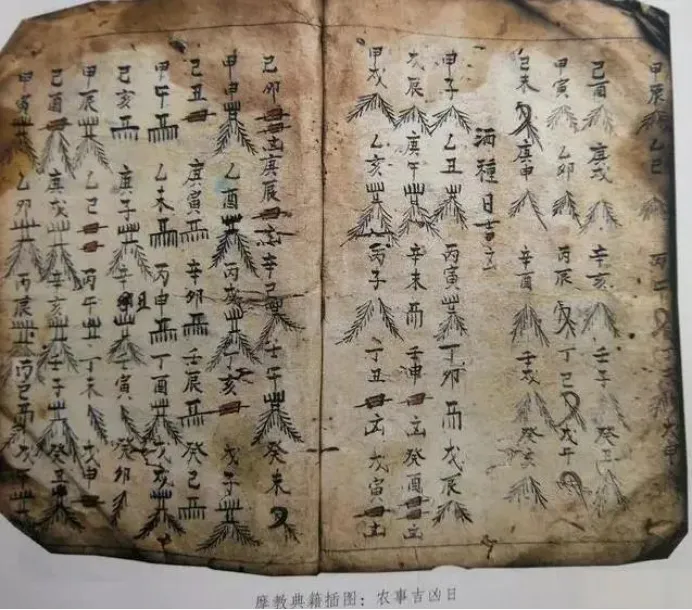 甲辰 乙巳 丙午
己酉 庚戌 辛亥 壬子 癸丑
甲寅 乙卯 丙辰 丁巳 戊午
己未 庚申 辛酉 壬戌 癸亥
洒種日吉立
甲子 乙丑 丙寅 丁卯 戊辰
辰 庚午 辛未 壬申 立 癸酉 立
甲戌 乙亥 丙子 丁丑 立 戊寅 立
己卯 立 庚辰 立 辛巳 壬午 癸未
甲申 乙酉 丙戌 丁亥 戊子
己丑 庚寅 辛卯 壬辰 癸巳
甲午 乙未 丙申 丁酉 戊亥
己亥 庚子 辛丑 壬寅 癸卯
甲辰 乙巳 丙午 丁未 戊申
己酉 庚戌 辛亥 壬子 癸丑
甲寅 乙卯 丙辰 巳 戊午
摩教典籍插图：农事吉凶日